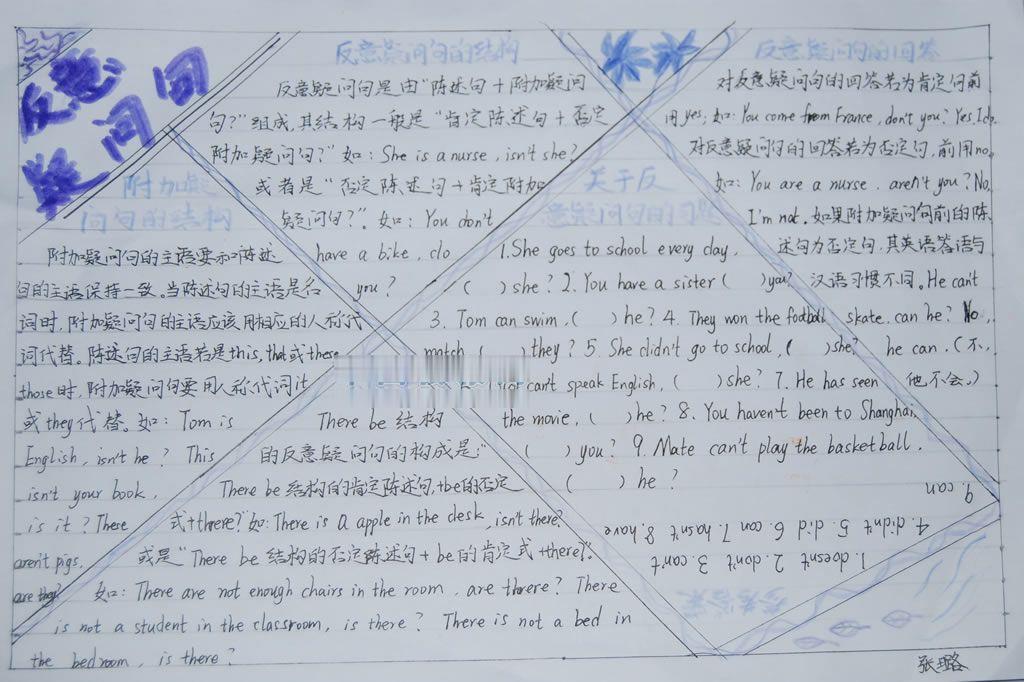 反意
疑问句
反意疑问句的结构
反意疑问句是由“陈述句+附加疑问
句?”组成,其结构一般是“肯定陈述句+否定
附加疑问句?”如:She is a nurse, isn't she?
或者是“否定陈述句+肯定附加
疑问句?”。如:You don't
have a bike, do
you?
附加疑
问句的结构
附加疑问句的主语要和陈述
句的主语保持一致。当陈述句的主语是名
词时,附加疑问句的主语应该用相应的人称代
词代替。陈述句的主语若是this, that或these
those时,附加疑问句要用人称代词it
或they代替。如:Tom is
English, isn't he? This
isn't your book,
is it? These
aren't pigs,
are they?
There be 结构
的反意疑问句的构成是:“
There be 结构的肯定陈述句,+be的否定
式+there?”如:There is a apple in the desk, isn't there?
或是“There be 结构的否定陈述句+be的肯定式+there?”.
如:There are not enough chairs in the room, are there? There
is not a student in the classroom, is there? There is not a bed in
the bedroom, is there?
关于反
意疑问句的习题
1.She goes to school every day,
( )she? 2. You have a sister ( )you?
3. Tom can swim, ( )he? 4. They won the football
match ( )they? 5. She didn't go to school, ( )she?
can't speak English, ( )she? 7. He has seen
the movie, ( )he? 8. You haven't been to Shanghai,
( )you? 9. Mate can't play the basketball,
( )he?
反意疑问句的回答
对反意疑问句的回答若为肯定句前
用yes;如:You come from France, don't you? Yes, I do.
对反意疑问句的回答若为否定句,前用no,
如:You are a nurse, aren't you? No,
I'm not. 如果附加疑问句前的陈
述句为否定句,其英语答语与
汉语习惯不同。He can't
skate, can he? No,
he can.(不,
他不会。)
参考答案
1. doesn't 2. don't 3. can't
4. didn't 5. did 6. can 7. hasn't 8. have
9. can
张璐